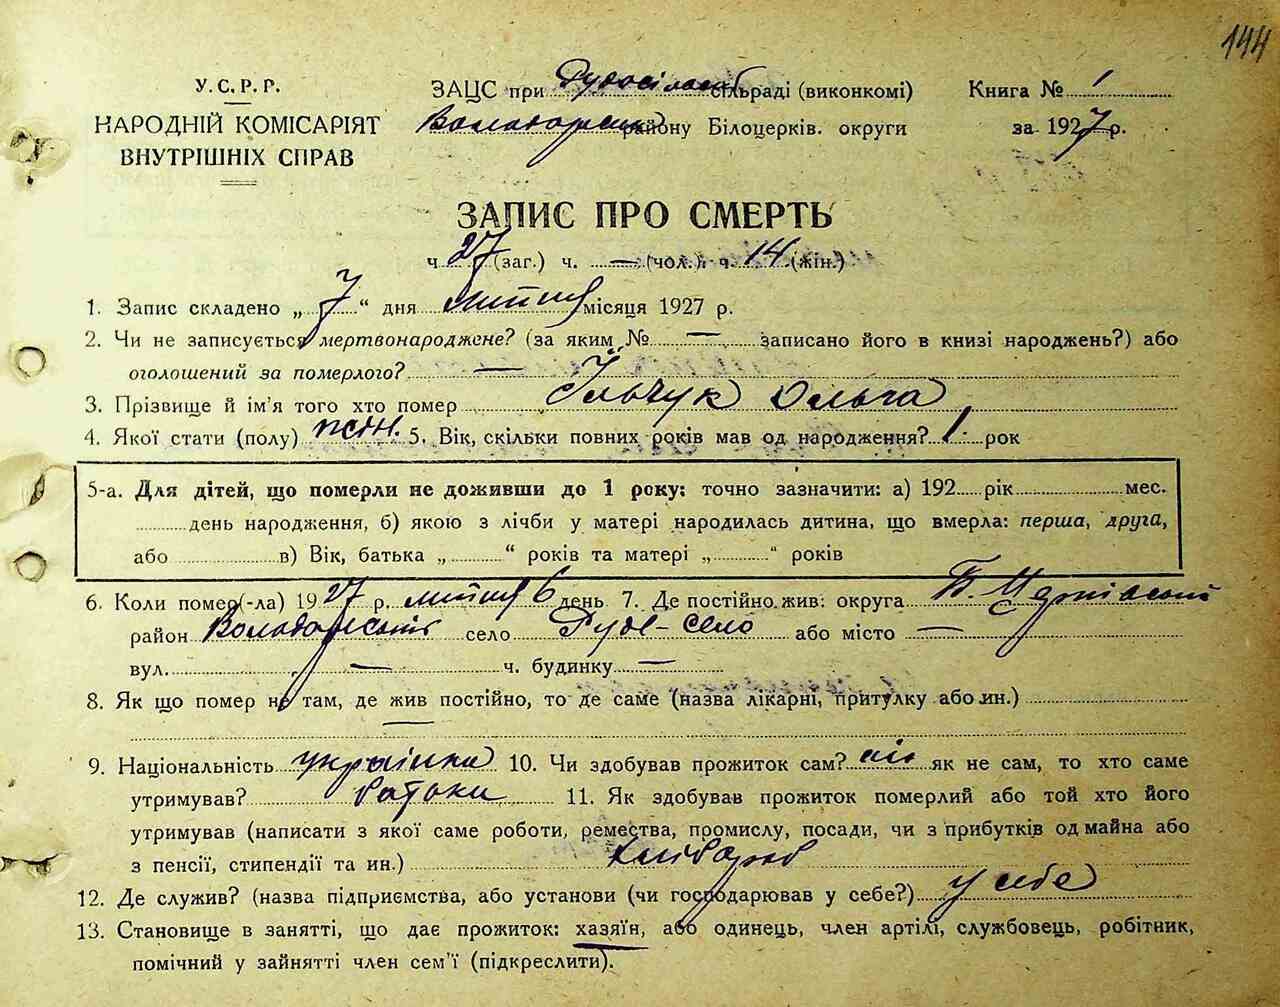 144
У.С.Р.Р.
НАРОДНІЙ КОМІСАРІЯТ
ВНУТРІШНІХ СПРАВ
ЗАЦС при Рудосільській сільраді (виконкомі)
Володарськ району Білоцерків. округи
Книга № 1
за 1927 р.
ЗАПИС ПРО СМЕРТЬ
ч. 27 (заг.) ч. — (чол.) ч. 14 (жін.)
1. Запис складено „ 7 “ дня липня місяця 1927 р.
2. Чи не записується мертвонароджене? (за яким № — записано його в книзі народжень?) або
оголошений за померлого? —
3. Прізвище й ім'я того хто помер Ільчук Ольга
4. Якої стати (полу) жін. 5. Вік, скільки повних років мав од народження? 1 рок
5-а. Для дітей, що померли не доживши до 1 року: точно зазначити: а) 192 рік мес.
день народження, б) якою з лічби у матері народилась дитина, що вмерла: перша, друга,
або в) Вік, батька „ “ років та матері „ “ років
6. Коли помер(-ла) 1927 р. липня 6 день 7. Де постійно жив: округа Б. Церківської
район Володарський село Руде-село або місто —
вул. — ч. будинку —
8. Як що помер не там, де жив постійно, то де саме (назва лікарні, притулку або ин.)
—
9. Національність українка 10. Чи здобував прожиток сам? ні як не сам, то хто саме
утримував? батьки 11. Як здобував прожиток померлий або той хто його
утримував (написати з якої саме роботи, ремества, промислу, посади, чи з прибутків од майна або
з пенсії, стипендії та ин.) хлібороб
12. Де служив? (назва підприємства, або установи (чи господарював у себе?) у себе
13. Становище в занятті, що дає прожиток: хазяїн, або одинець, член артілі, службовець, робітник,
помічний у зайнятті член сем'ї (підкреслити).